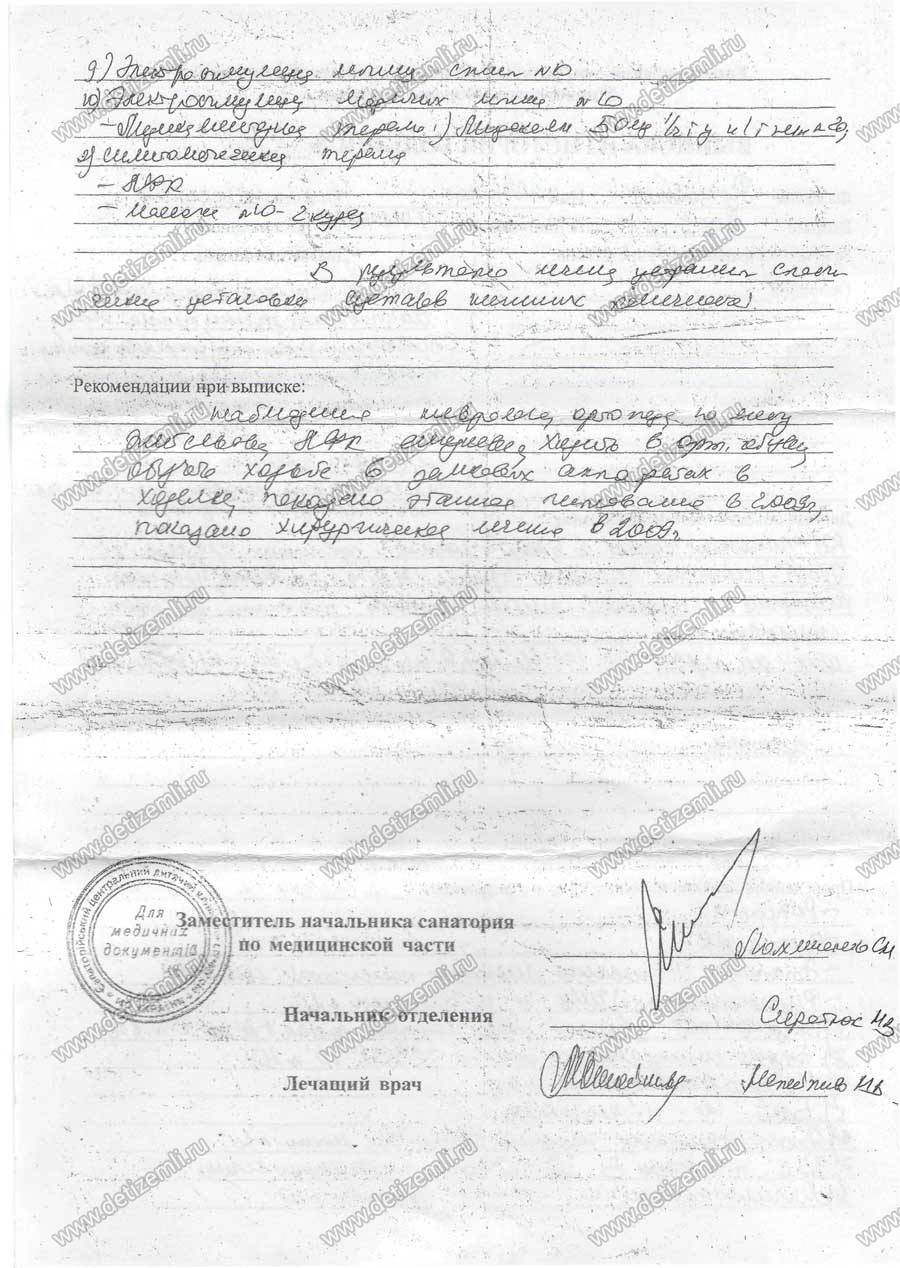 9) Электростимуляция мышц спины №10
10) Электростимуляция мышц №10
- Медикаментозная терапия: 1) Мидокалм 50 мг 1/2 т
2) симптоматическая терапия
- ЛФК
- Массаж №10 - 2 курса
В результате лечения
установка суставов нижних конечностей
Рекомендации при выписке:
Наблюдение невролога, ортопеда по месту
жительства, ЛФК ежедневно, ходить в орт. обуви,
обучать ходьбе в замковых аппаратах в
ходелке, показано этапное гипсование в 2009г,
показано хирургическое лечение в 2009г.
Санаторійський центральний дитячий
Для
медичних
документів
Заместитель начальника санатория
по медицинской части
Начальник отделения
Лечащий врач
www.detizemli.ru